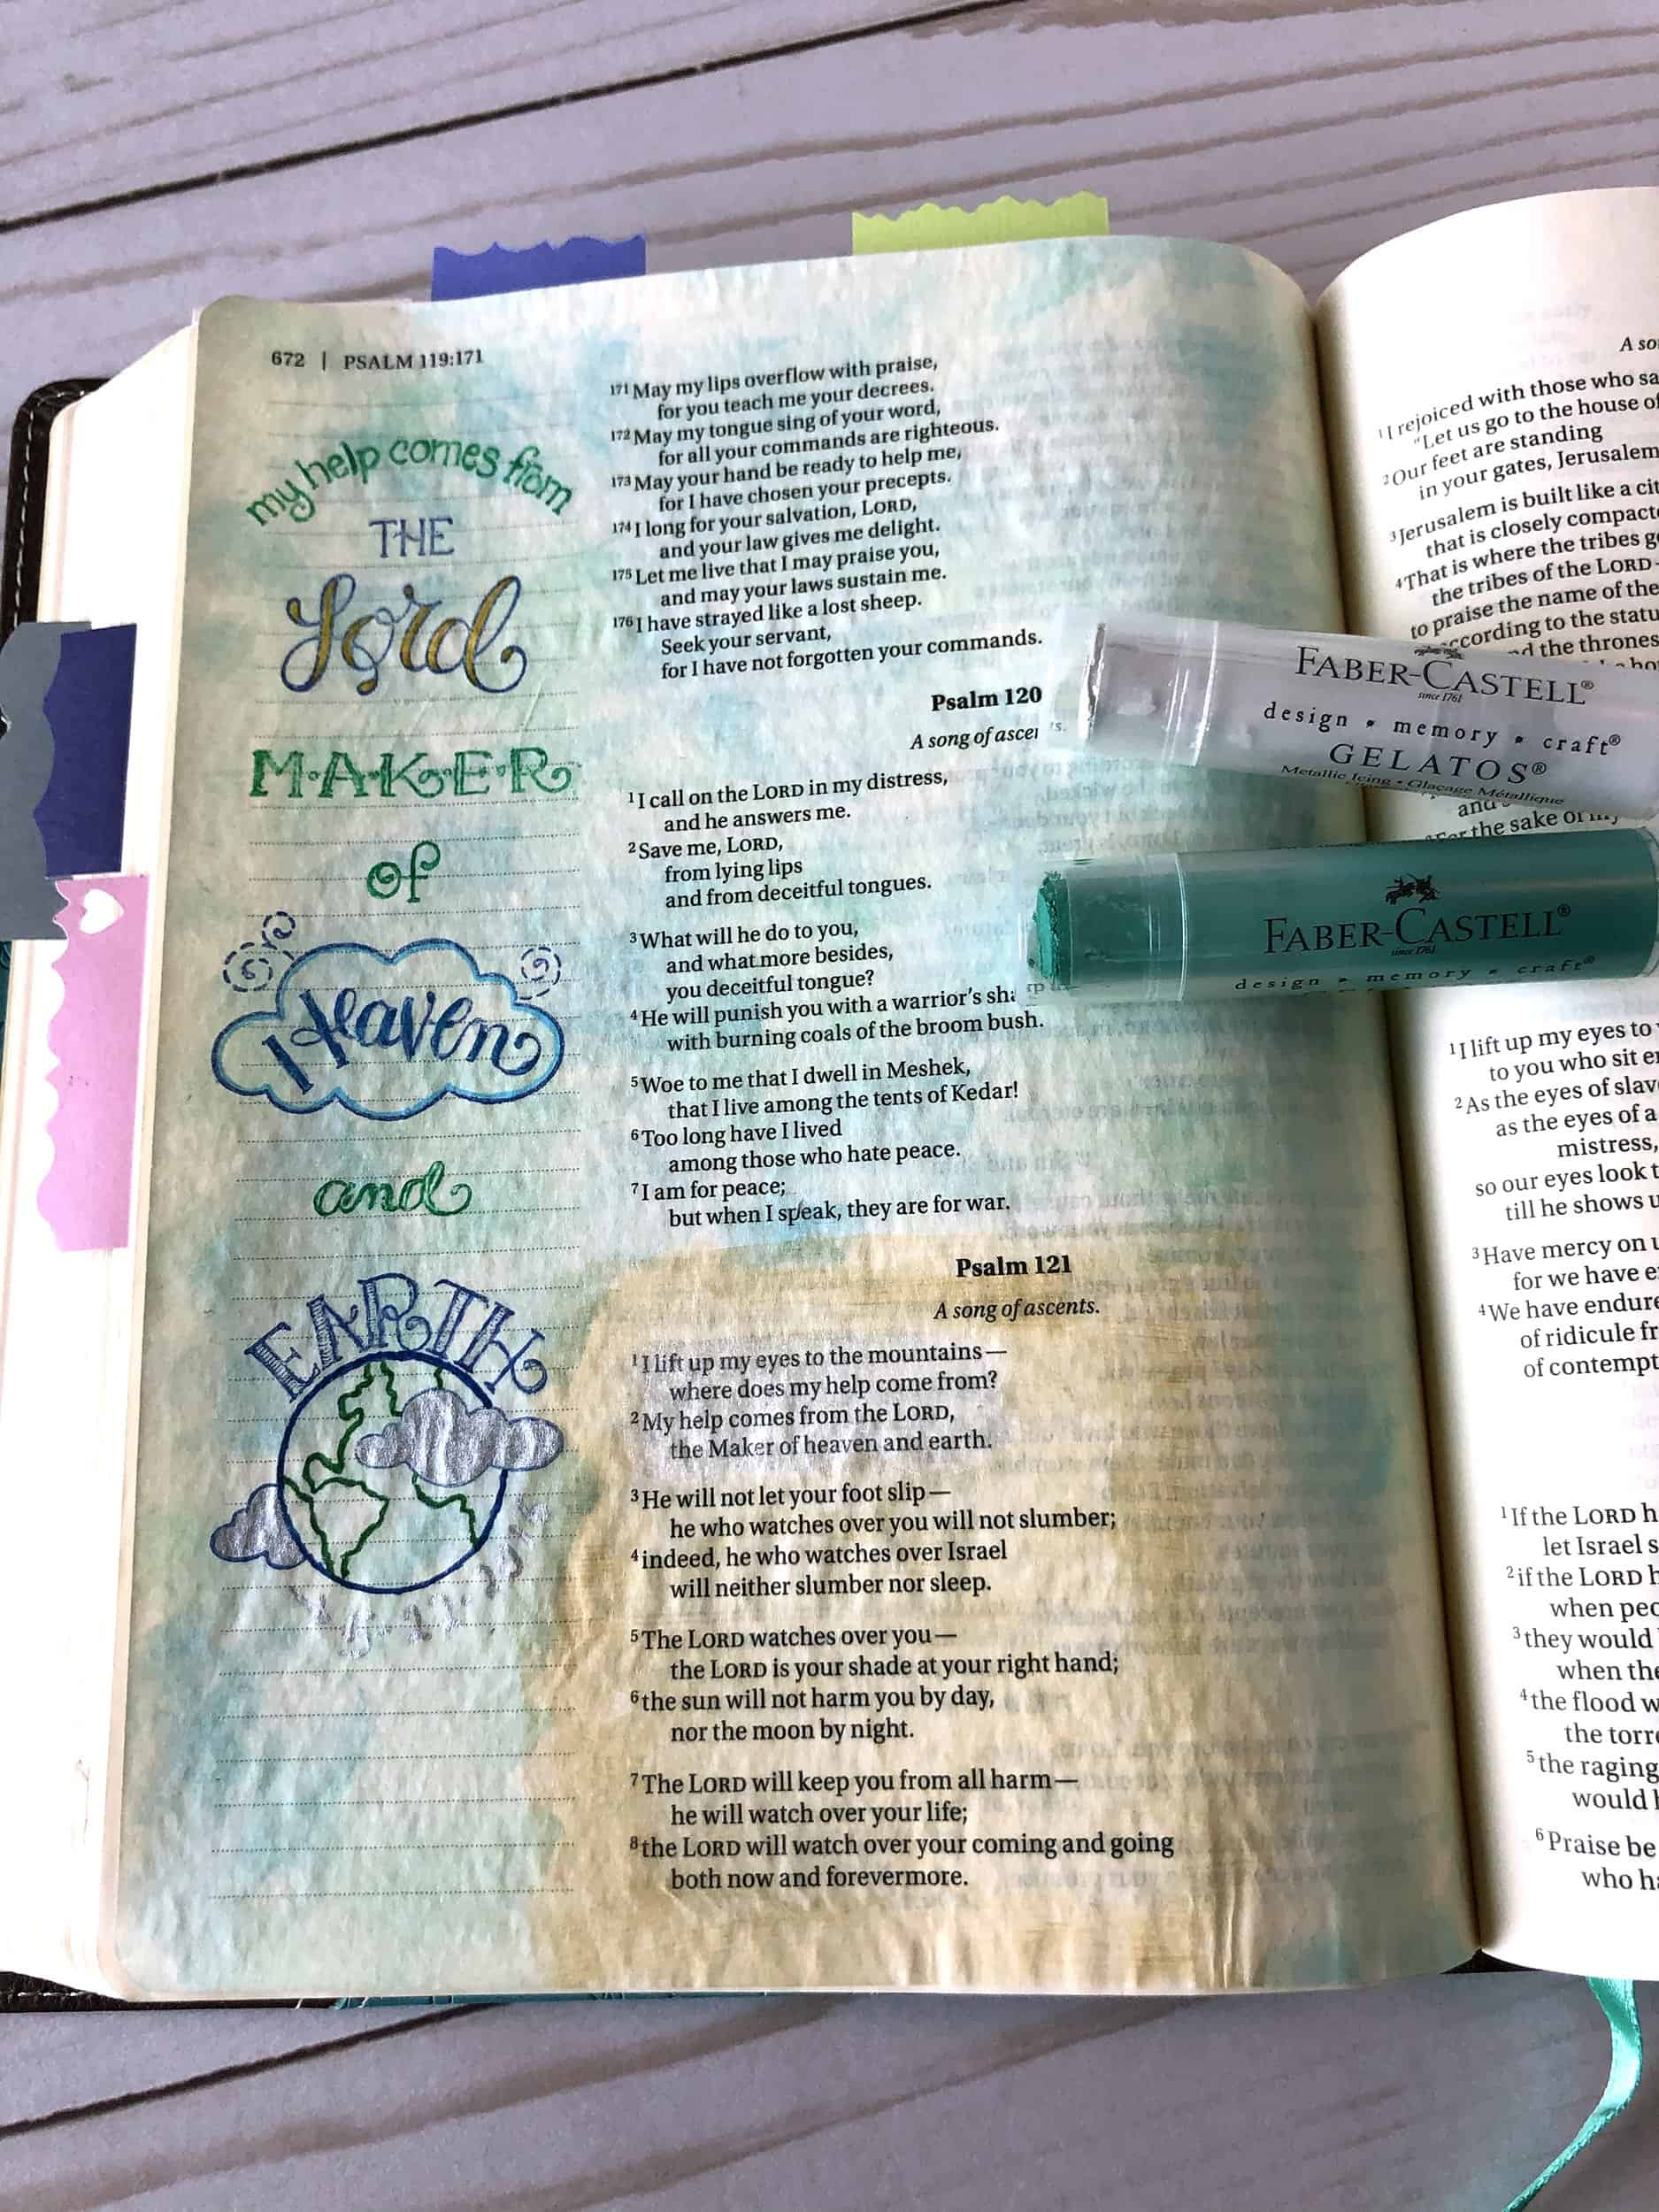 672 | PSALM 119:171
my help comes from
THE
Lord
MAKER
of
Heaven
and
EARTH
171 May my lips overflow with praise,
for you teach me your decrees.
172 May my tongue sing of your word,
for all your commands are righteous.
173 May your hand be ready to help me,
for I have chosen your precepts.
174 I long for your salvation, LORD,
and your law gives me delight.
175 Let me live that I may praise you,
and may your laws sustain me.
176 I have strayed like a lost sheep.
Seek your servant,
for I have not forgotten your commands.
Psalm 120
A song of
1 I call on the LORD in my distress,
and he answers me.
2 Save me, LORD,
from lying lips
and from deceitful tongues.
3 What will he do to you,
and what more besides,
you deceitful tongue?
4 He will punish you with a warrior's
with burning coals of the broom bush.
5 Woe to me that I dwell in Meshek,
that I live among the tents of Kedar!
6 Too long have I lived
among those who hate peace.
7 I am for peace;
but when I speak, they are for war.
Psalm 121
A song of ascents.
1 I lift up my eyes to the mountains—
where does my help come from?
2 My help comes from the LORD,
the Maker of heaven and earth.
3 He will not let your foot slip—
he who watches over you will not slumber;
4 indeed, he who watches over Israel
will neither slumber nor sleep.
5 The LORD watches over you—
the LORD is your shade at your right hand;
6 the sun will not harm you by day,
nor the moon by night.
7 The LORD will keep you from all harm—
he will watch over your life;
8 the LORD will watch over your coming and going
both now and forevermore.
FABER-CASTELL®
since 1761
design • memory • craft®
GELATOS®
Metallic Icing • Glaçage Métallique
FABER-CASTELL®
since 1761
design • memory • craft®
A
1 I rejoiced with those who
"Let us go to the house
2 Our feet are standing
in your gates, Jerusalem
3 Jerusalem is built like a
that is closely
4 That is where the tribes
the tribes of the LORD
to praise the name of the
according to the
the thrones
the sake of
1 I lift up my eyes to
to you who sit
2 As the eyes of
as the eyes of a
mistress,
so our eyes look
till he shows
3 Have mercy on
for we have
4 We have
of ridicule
of contempt
1 If the LORD
let Israel
2 if the LORD
when
3 they would
when
4 the flood
the
5 the raging
would
6 Praise be
who